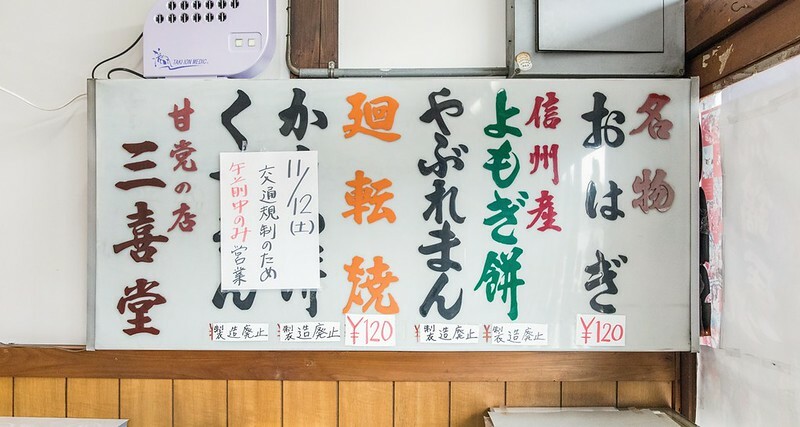 TAKI ION MEDIC
名物
おはぎ
¥120
信州産
よもぎ餅
¥製造廃止
やぶれまん
¥製造廃止
廻転焼
¥120
か
¥製造廃止
く
ん
¥製造廃止
11/12(土)
交通規制のため
午前中のみ営業
甘党の店
三喜堂